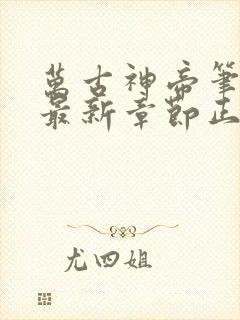 萬古神帝筆
最新章節正
尤四姐